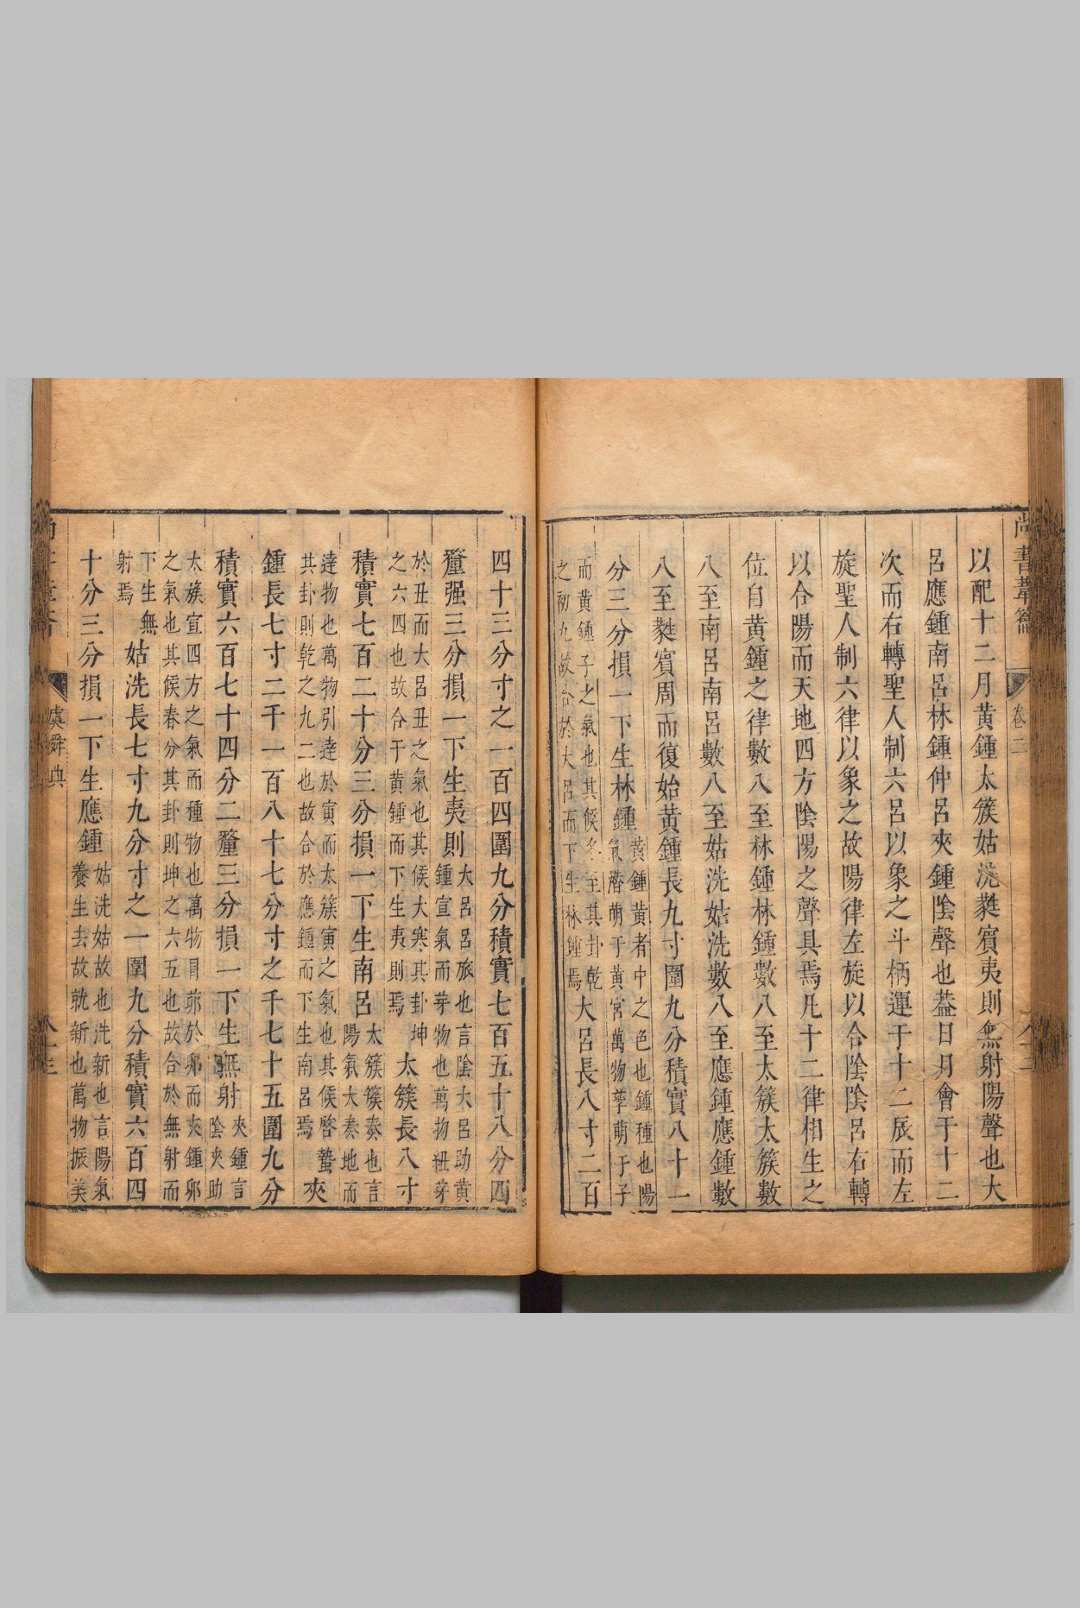 尚書葦籥
卷二
以配十二月黃鍾太簇姑洗蕤賓夷則無射陽聲也大
呂應鍾南呂林鍾仲呂夾鍾陰聲也葢日月會于十二
次而右轉聖人制六呂以象之斗柄運于十二辰而左
旋聖人制六律以象之故陽律左旋以合陰陰呂右轉
以合陽而天地四方陰陽之聲具焉凡十二律相生之
位自黃鍾之律數八至林鍾林鍾數八至太簇太簇數
八至南呂南呂數八至姑洗姑洗數八至應鍾應鍾數
八至蕤賓周而復始黃鍾長九寸圍九分積實八十一
分三分損一下生林鍾
黃鍾黃者中之色也鍾種也陽
氣潛萌于黃宮萬物孳萌于子
而黃鍾子之氣也其候冬至其卦乾
之初九故合於大呂而下生林鍾焉
大呂長八寸二百
四十三分寸之一百四圍九分積實七百五十八分四
釐强三分損一下生夷則
大呂呂旅也言陰大呂助黃
鍾宣氣而芽物也萬物紐芽
於丑而大呂丑之氣也其候大寒其卦坤
之六四也故合于黃鍾而下生夷則焉
太簇長八寸
積實七百二十分三分損一下生南呂
太簇簇奏也言
陽氣大奏地而
達物也萬物引達於寅而太簇寅之氣也其候啓蟄
其卦則乾之九二也故合於應鍾而下生南呂焉
夾
鍾長七寸二千一百八十七分寸之千七十五圍九分
積實六百七十四分二釐三分損一下生無射
夾鍾言
陰夾助
太簇宣四方之氣而種物也萬物冒茆於卯而夾鍾卯
之氣也其候春分其卦則坤之六五也故合於無射而
下生無
射焉
姑洗長七寸九分寸之一圍九分積實六百四
十分三分損一下生應鍾
姑洗姑故也洗新也言陽氣
養生去故就新也萬物振美
虞舜典